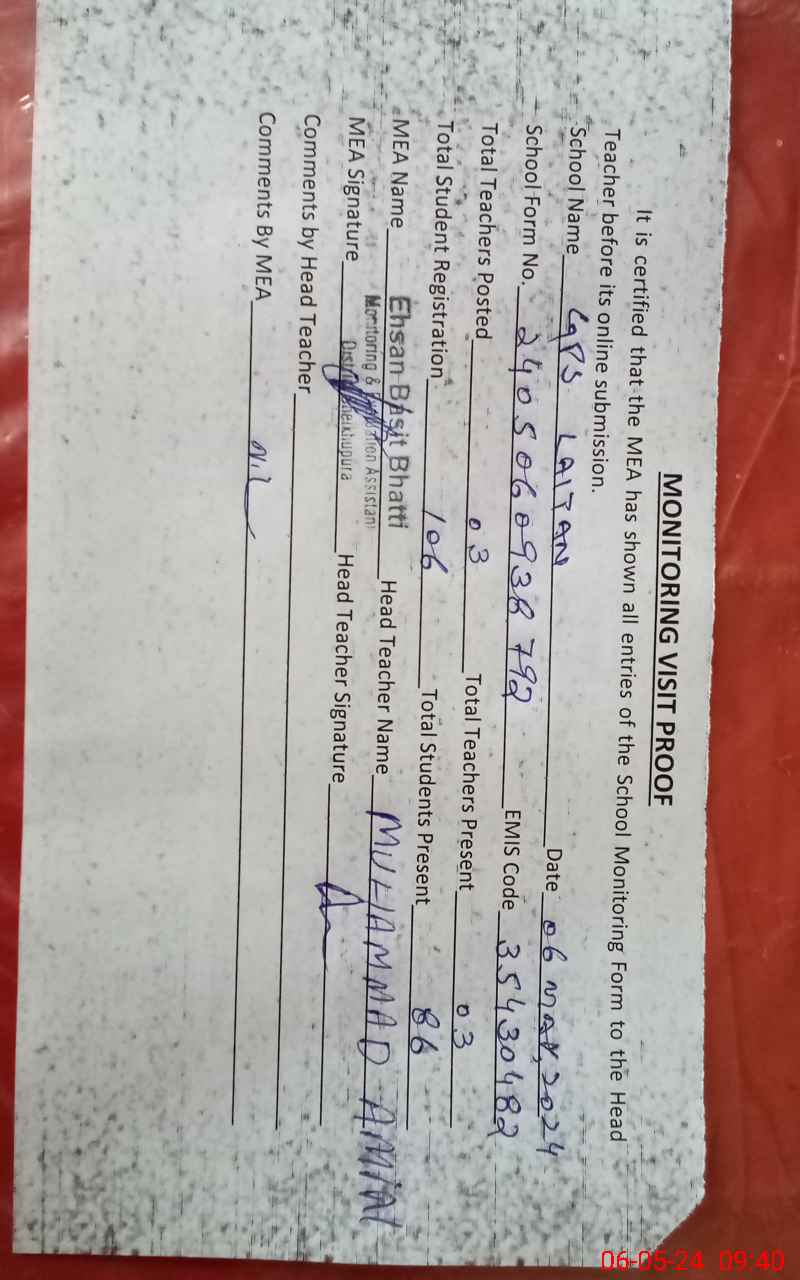 MONITORING VISIT PROOF
It is certified that the MEA has shown all entries of the School Monitoring Form to the Head
Teacher before its online submission.
School Name GPS LAITAN Date 06 MAY, 2024
School Form No. 2405060938792 EMIS Code 35430482
Total Teachers Posted 03 Total Teachers Present 03
Total Student Registration 106 Total Students Present 86
MEA Name Ehsan Basit Bhatti Head Teacher Name MUHAMMAD AMIN
Monitoring & Assistant
MEA Signature Sheikhupura Head Teacher Signature
Comments by Head Teacher
Comments By MEA Nil
06-05-24 09:40